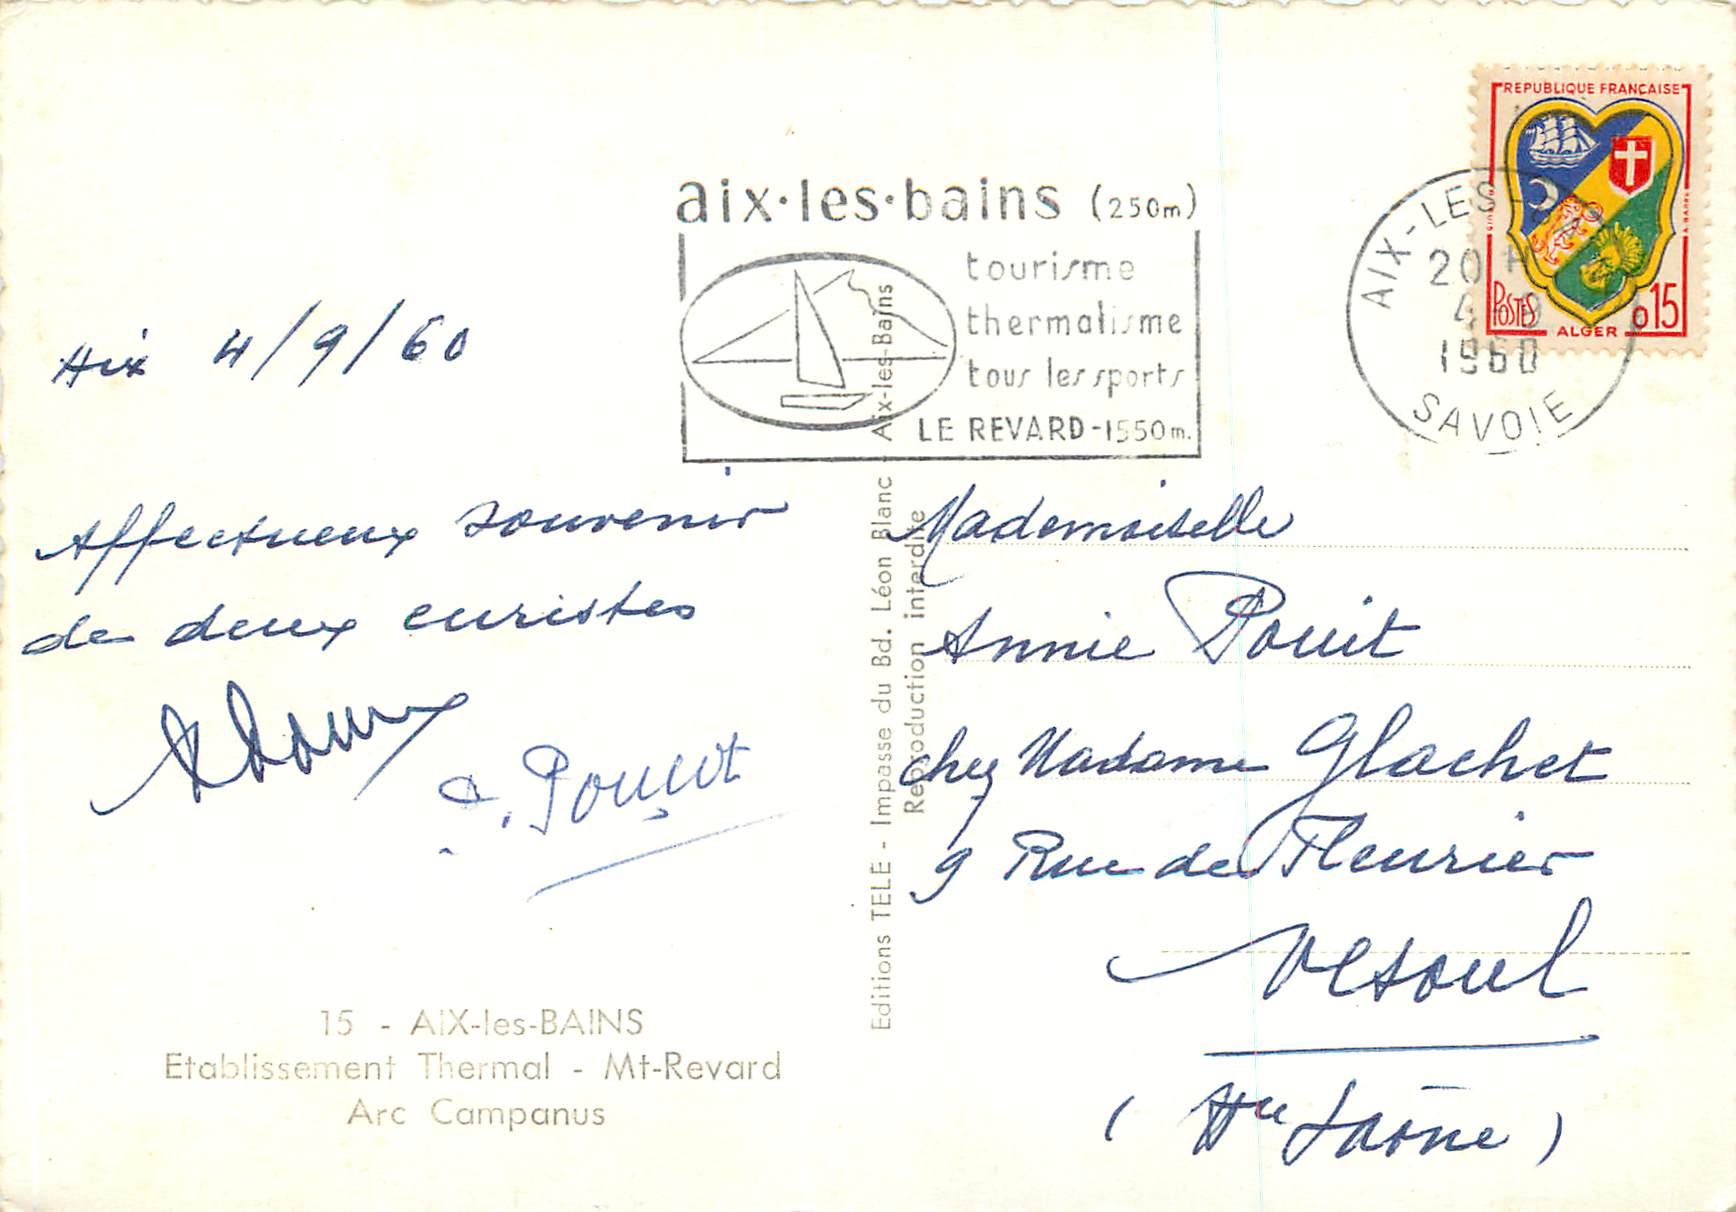 aix·les·bains (250m)
tourisme
thermalisme
tous les sports
LE REVARD-1550m.
REPUBLIQUE FRANÇAISE
POSTES
ALGER
0,15
AIX-LES-B
20 H
4-9
1960
SAVOIE
Aix 4/9/60
Affectueux souvenir
de deux curistes
Mademoiselle
Annie Pouit
chez Madame Glachet
9 Rue de Fleurier
Vesoul
(Hte Saône)
15 - AIX-les-BAINS
Etablissement Thermal - Mt-Revard
Arc Campanus
Editions TELE - Impasse du Bd. Léon Blanc - Aix-les-Bains
Reproduction interdite